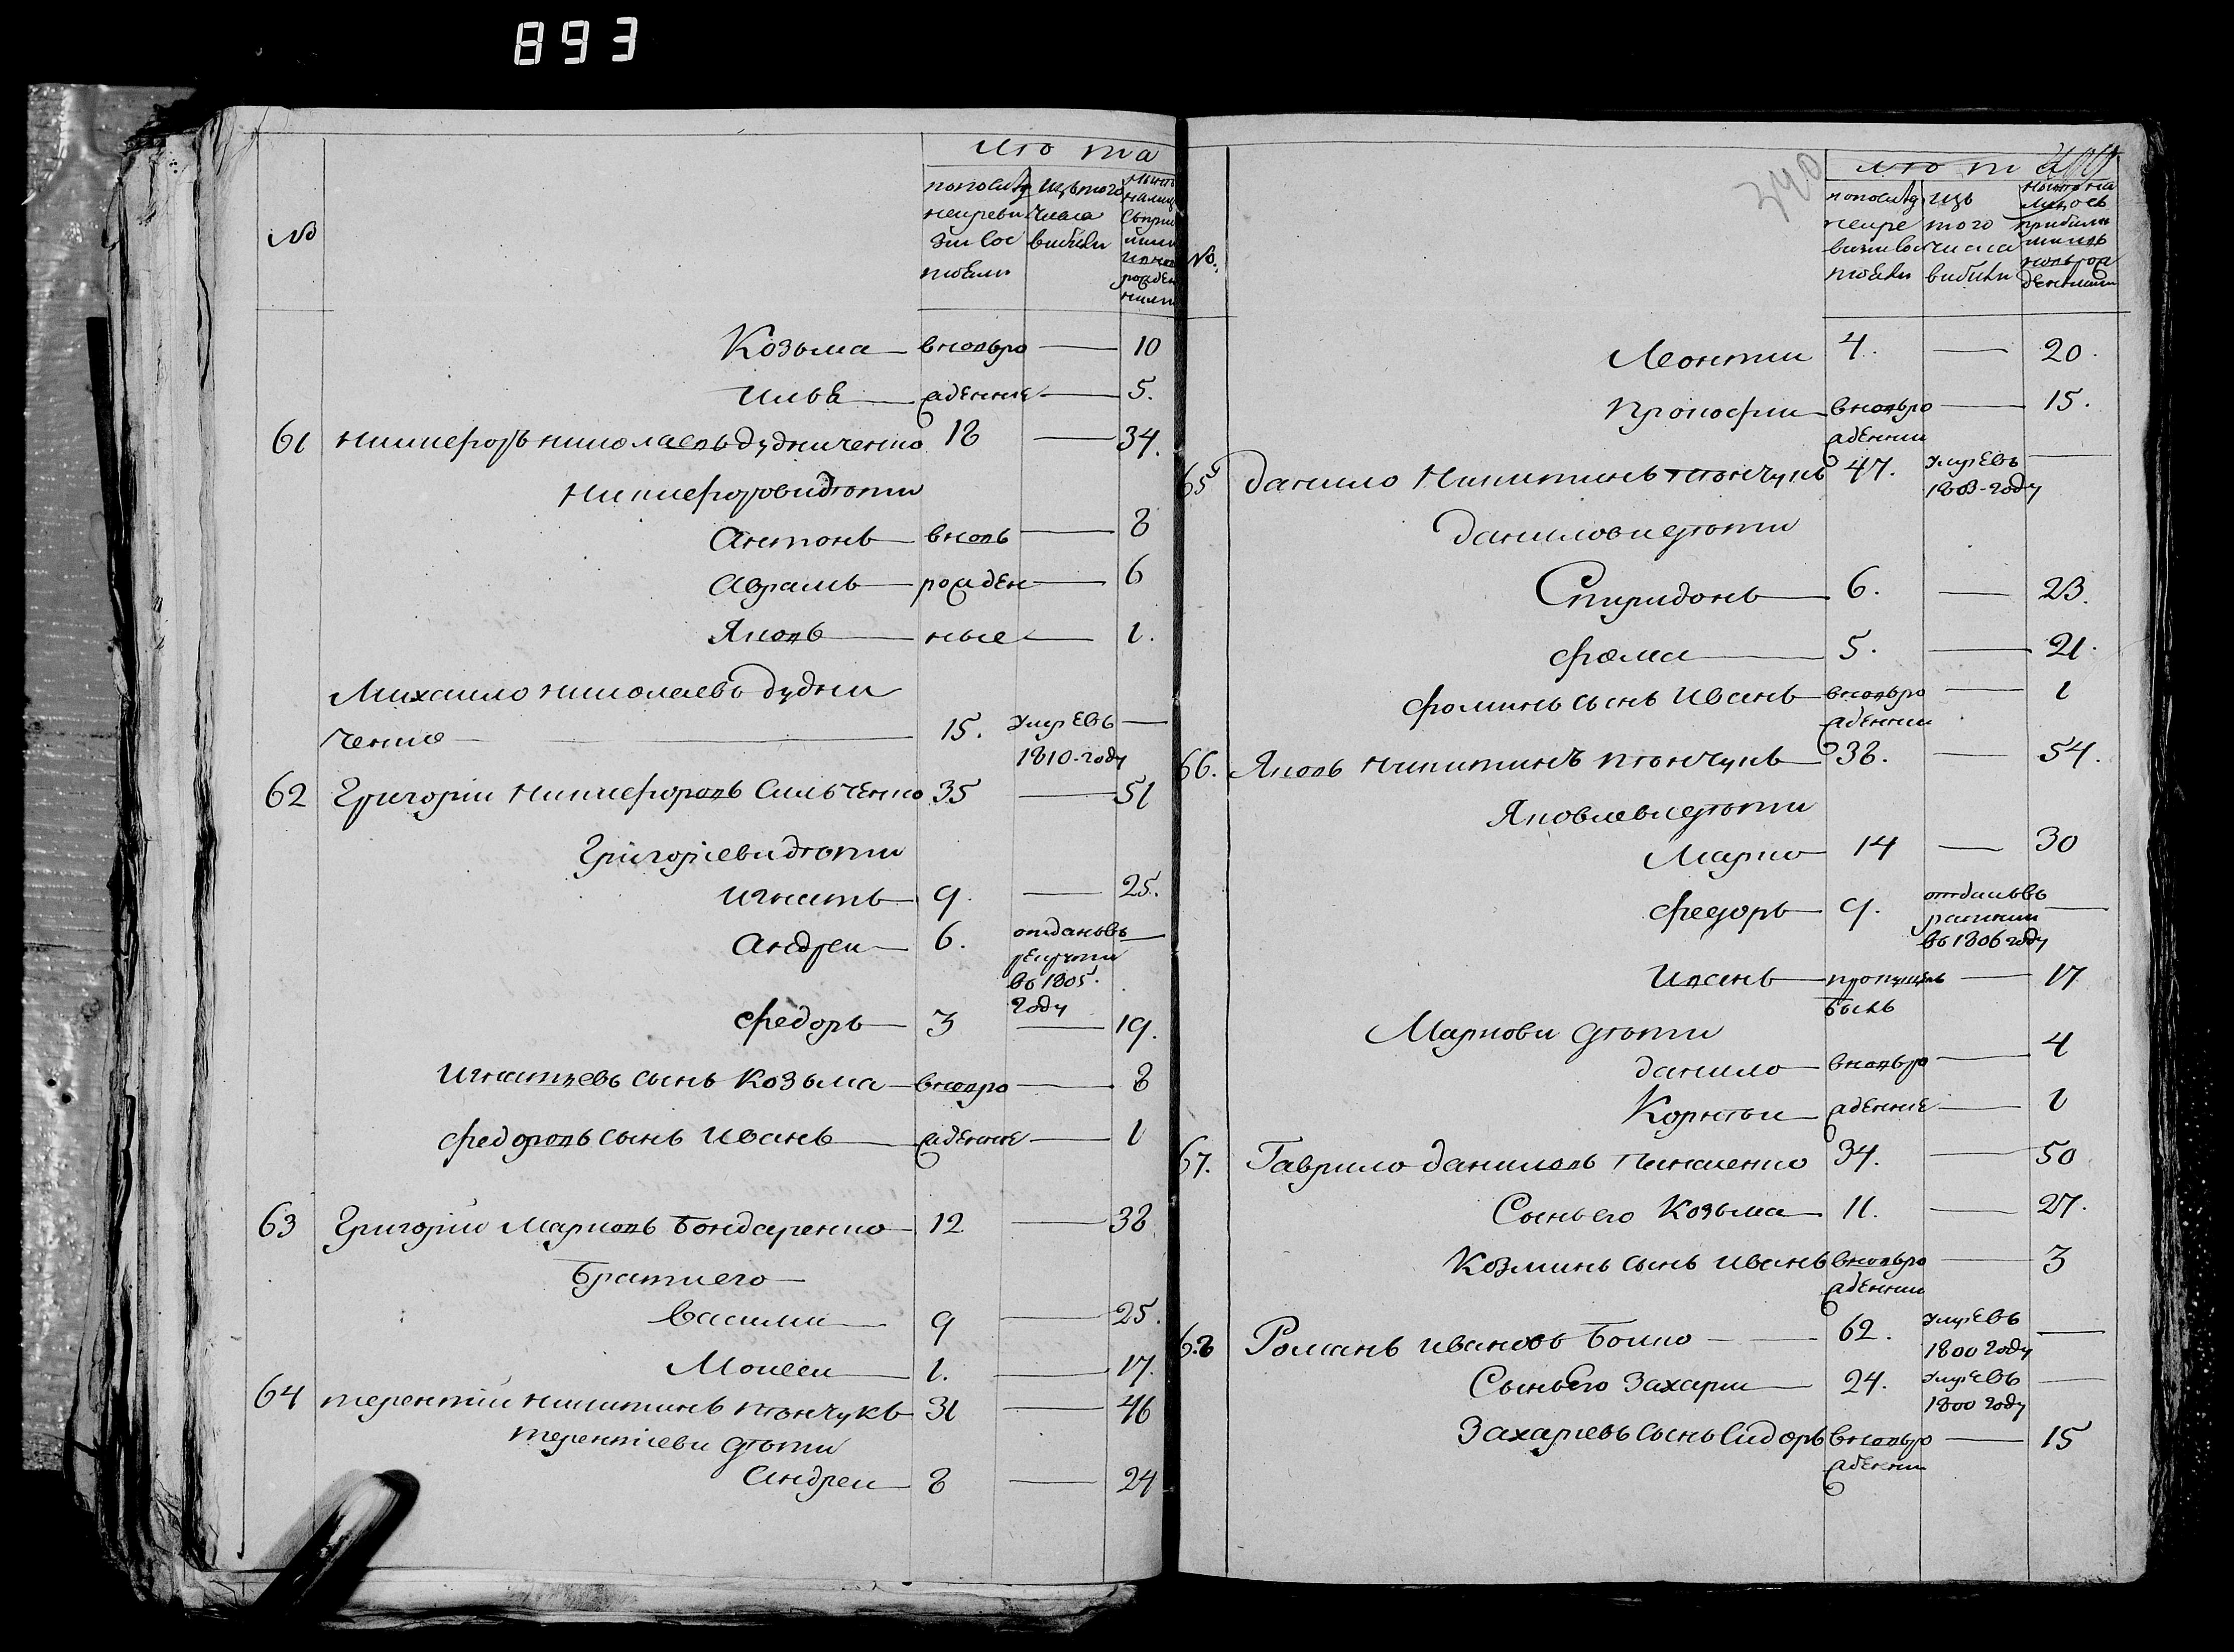 893
лѣта
№
по последней ревизии состояли
изъ того числа выбыли
Козьма — вновьро — 10
Илья — жденные — 5.
61 Никифоръ Николаевъ Дудниченко 18 — 34.
Никифоровы дѣти
Антонъ — вновь — 8
Аврамъ — рожден — 6
Яковъ — ные — 1.
Михайло Николаевъ Дудни
ченко — 15. умре въ —
1810-году
62 Григорій Никифоровъ Сильченко 35 — 51
Григоріевы дѣти
Игнатъ — 9. — 25.
Андрей — 6. отданъ въ —
рекруты
въ 1805.
году
Федоръ — 3 — 19.
Игнатьевъ сынъ Козьма — вновро — 8
Федоровъ сынъ Иванъ — жденные — 1
63 Григорій Марковъ Бондаренко — 12 — 38
Братиего —
Василий — 9 — 25.
Моисей — 1. — 17.
64 Терентій Никитинъ Пѣнчукъ 31 — 46
Терентіеви дѣти
Андрей — 8 — 24
340
лѣта
№.
по последней ревизии состояли
изъ того числа выбыли
Леонтий 4. — 20.
Прокофий — вновьро — 15.
жденний
65 Данило Никитинъ Пѣнчукъ 47. умре въ —
1803-году
Даниловы дѣти
Спиридонъ — 6. — 23.
Фома — 5. — 21.
Фоминъ сынъ Иванъ — вновьро — 1
жденний
66. Яковъ Никитинъ Пѣнчукъ — 38. — 54.
Яковлевы дѣти
Марко — 14 — 30
Федоръ — 9. отданъ въ —
въ 1806 году
Иванъ — пропущенъ — 17
былъ
Маркови дѣти
Данило — вновьро — 4
Корнѣй — жденние — 1
67. Гаврило Даниловъ 34. — 50
Сынъ его Козьма — 11. — 27.
Козминъ сынъ Иванъ вновьро — 3
жденний
68 Романъ Ивановъ Бойко — 62. умре въ —
1800 году
Сынъ его Захарий — 24. умре въ —
1800 году
Захариевъ сынъ Сидоръ вновьро — 15
жденний